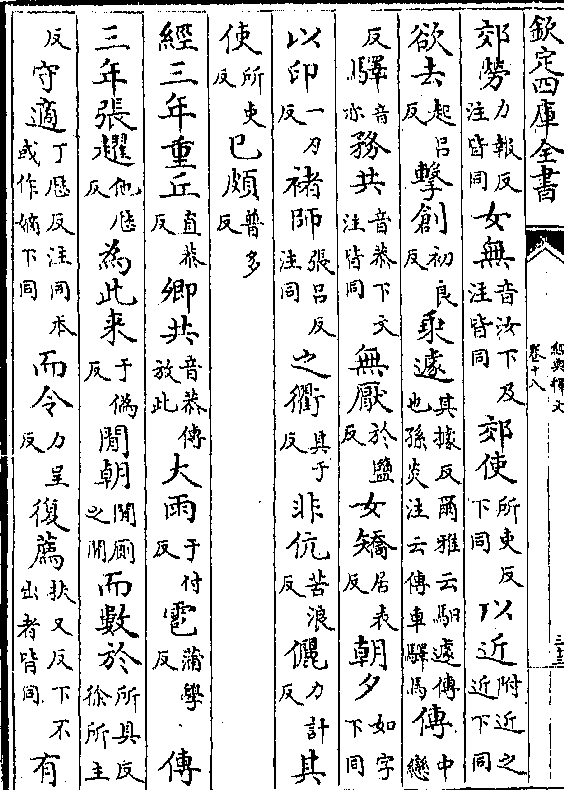 欽定四庫全書
經典釋文
卷十八
郊勞力報反注皆同女無音汝下及注皆同郊使所吏反下同以近附近之近下同
欲去起呂反擊創初良反乘遽其據反爾雅云馹遽傳也孫炎注云傳車驛馬傳中戀
反驛音亦務共音恭下文注皆同無厭於鹽反女矯居表反朝夕如字下同
以印一刃反褚師張呂反注同之衢其于反非伉苦浪反儷力計反其
使所吏反已頗普多反
經三年重丘直恭反卿共音恭傳放此大雨于付反雹蒲學反傳
三年張趯他厯反為此来于偽反閒朝閒厠之閒而數於所具反徐所主
反守適丁厯反注同本或作嫡下同而令力呈反復薦扶又反下不出者皆同有